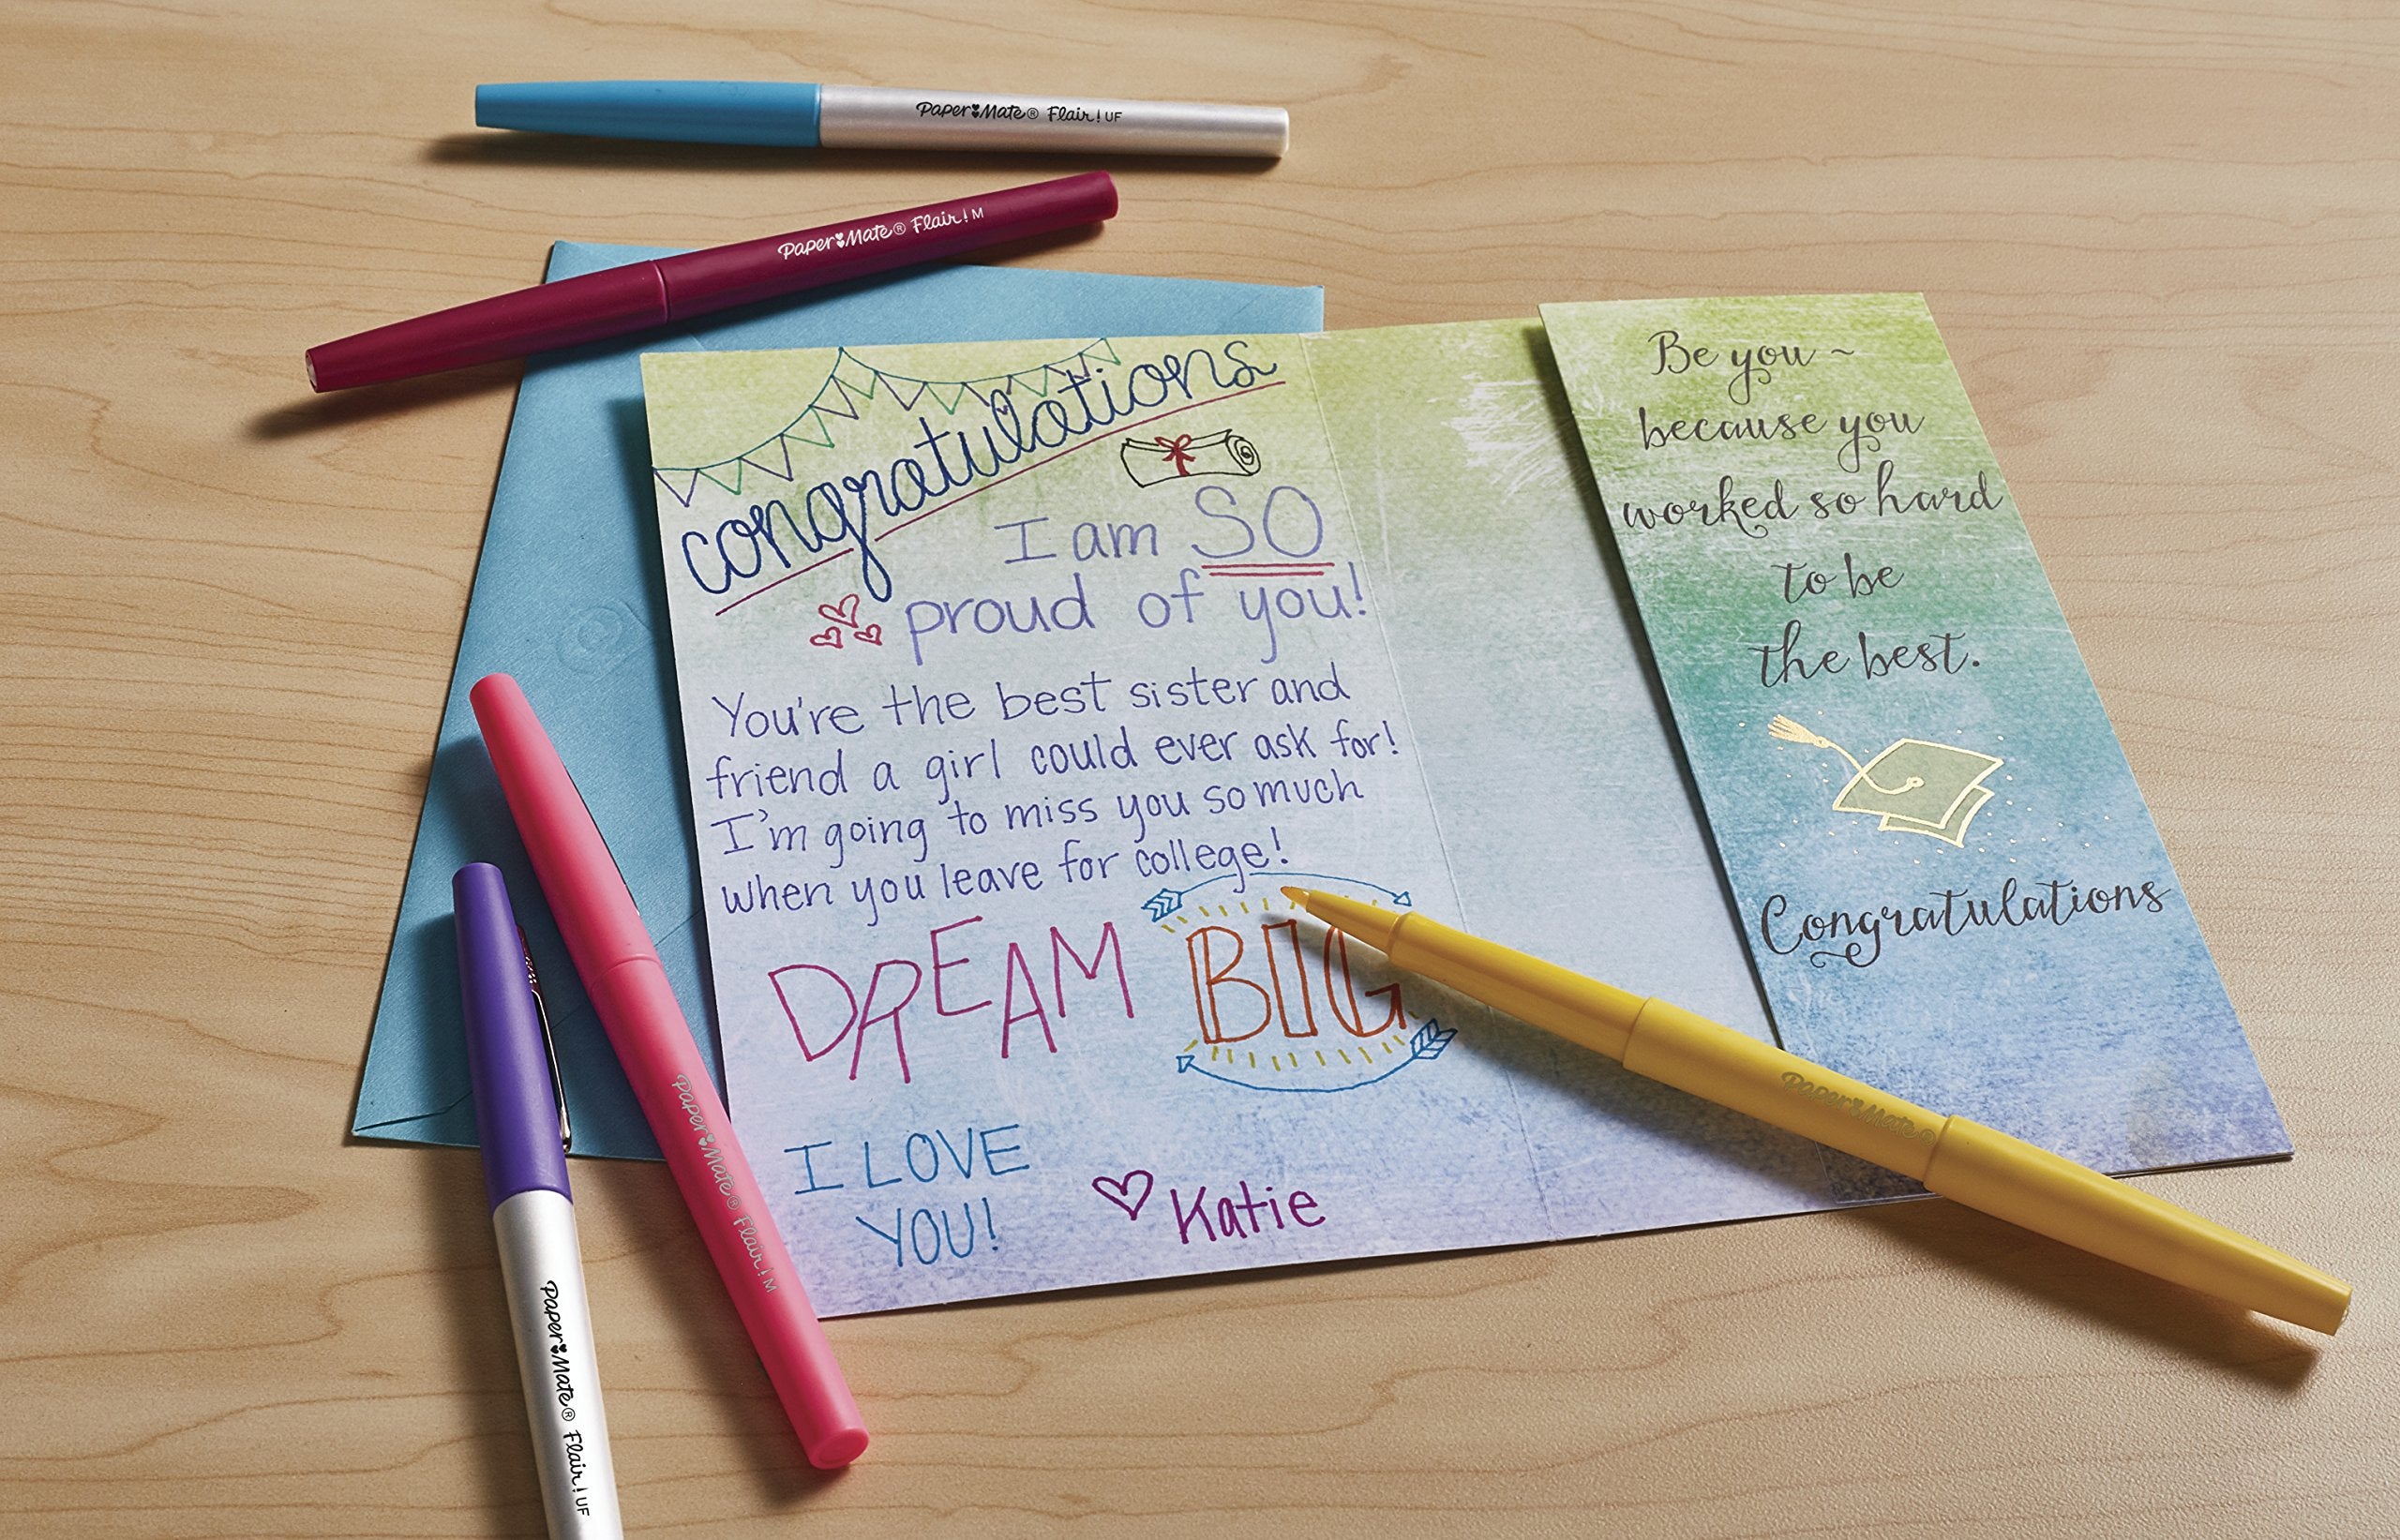 Paper Mate® Flair! UF
Paper Mate® Flair! M
congratulations
I am SO
proud of you!
You're the best sister and
friend a girl could ever ask for!
I'm going to miss you so much
when you leave for college!
DREAM BIG
I LOVE
YOU!
Katie
Be you ~
because you
worked so hard
to be
the best.
Congratulations
Paper Mate® Flair! M
Paper Mate® Flair! UF
Paper Mate®